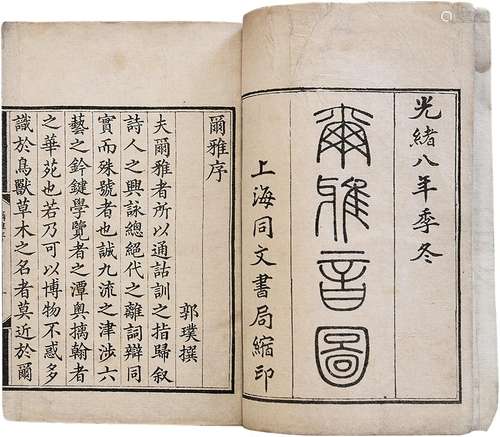 光緒八年季冬
爾雅音圖
上海同文書局縮印
爾雅序
郭璞撰
夫爾雅者所以通詁訓之指歸敘
詩人之興詠總絕代之離詞辯同
實而殊號者也誠九流之津涉六
藝之鈐鍵學覽者之潭奧摛翰者
之華苑也若乃可以博物不惑多
識於鳥獸草木之名者莫近於爾